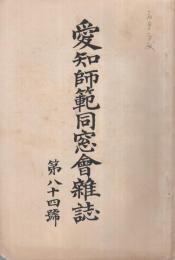 愛知師範同窓會雜誌
第八十四號